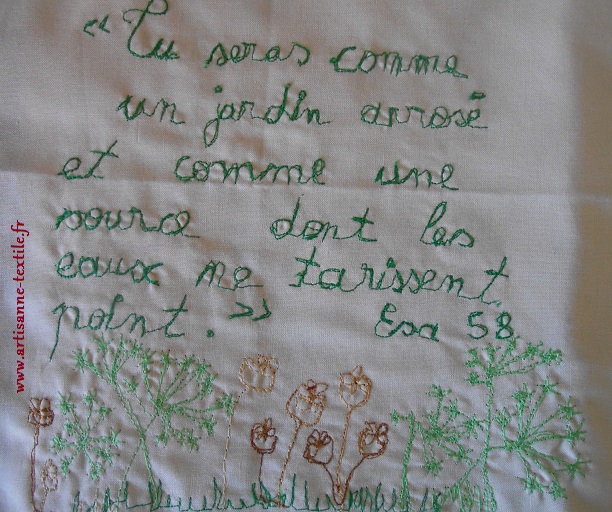 « Tu seras comme
un jardin arrosé
et comme une
source dont les
eaux ne tarissent
point. » Esa 58
www.artisanne-textile.fr